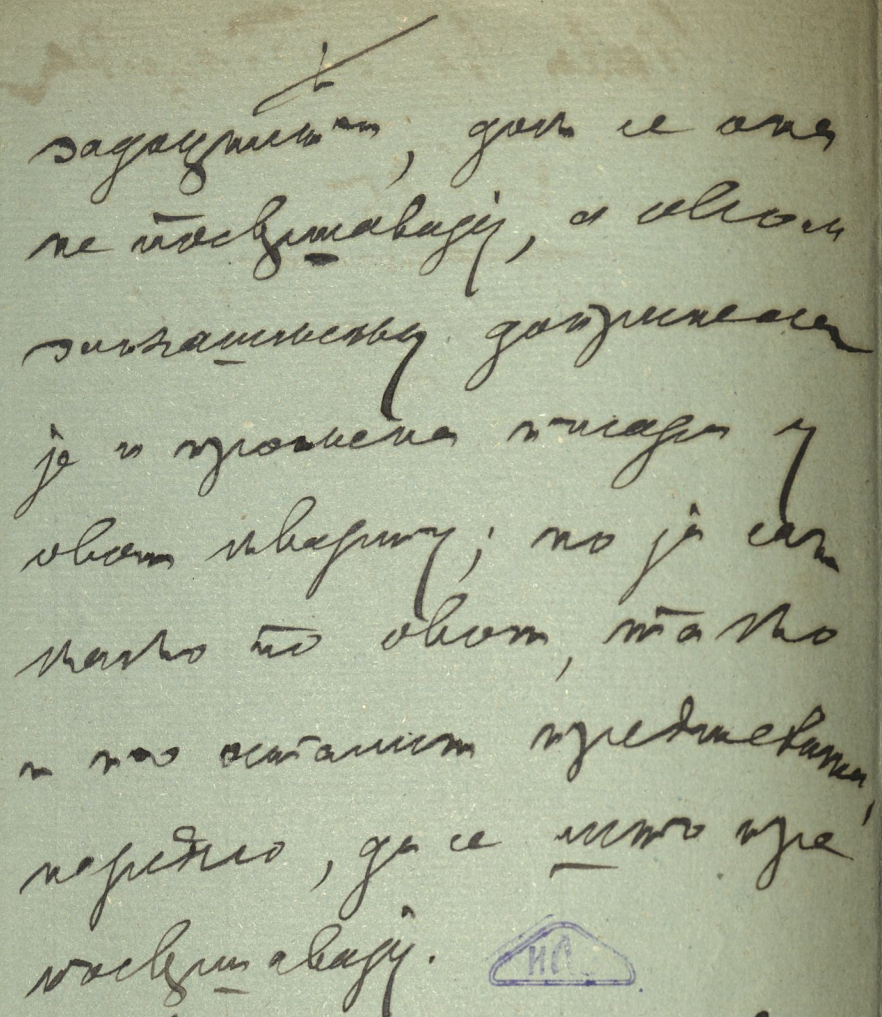 задоцнити, док се она
не посвршавају, а овом
закашњењу допринела
је и промена писара у
овом кварту; но ја сам
како по овом, тако
и по осталим предметима,
наредио, да се што пре
посвршавају.
ИС